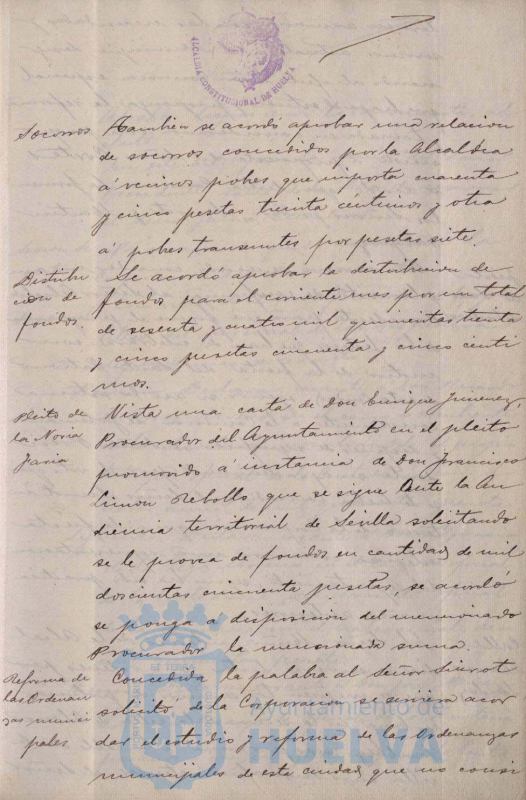 ALCALDIA CONSTITUCIONAL DE HUELVA
Socorros. Tambien se acordó aprobar una relacion
de socorros concedidos por la Alcaldia
á vecinos pobres que importa cuarenta
y cinco pesetas treinta céntimos y otra
á pobres transeuntes por pesetas siete.
Distribu Se acordó aprobar la distribucion de
cion de fondos para el corriente mes por un total
fondos. de sesenta y cuatro mil quinientas treinta
y cinco pesetas cincuenta y cinco centi
mos.
Pleito de Vista una carta de Don Enrique Jimenez,
la Noria Procurador del Ayuntamiento en el pleito
promovido á instancia de Don Francisco
Limon Rebollo que se sigue ante la Au
diencia territorial de Sevilla solicitando
se le provea de fondos en cantidad de mil
doscientas cincuenta pesetas, se acordó
se ponga a disposicion del mencionado
Procurador la mencionada suma.
Reforma de Concedida la palabra al Señor
las Ordenan solicitó de la Corporacion se sirviera acor
zas munici dar el estudio y reforma de las Ordenanzas
pales municipales de esta ciudad, que no consi
Ayuntamiento de
HUELVA